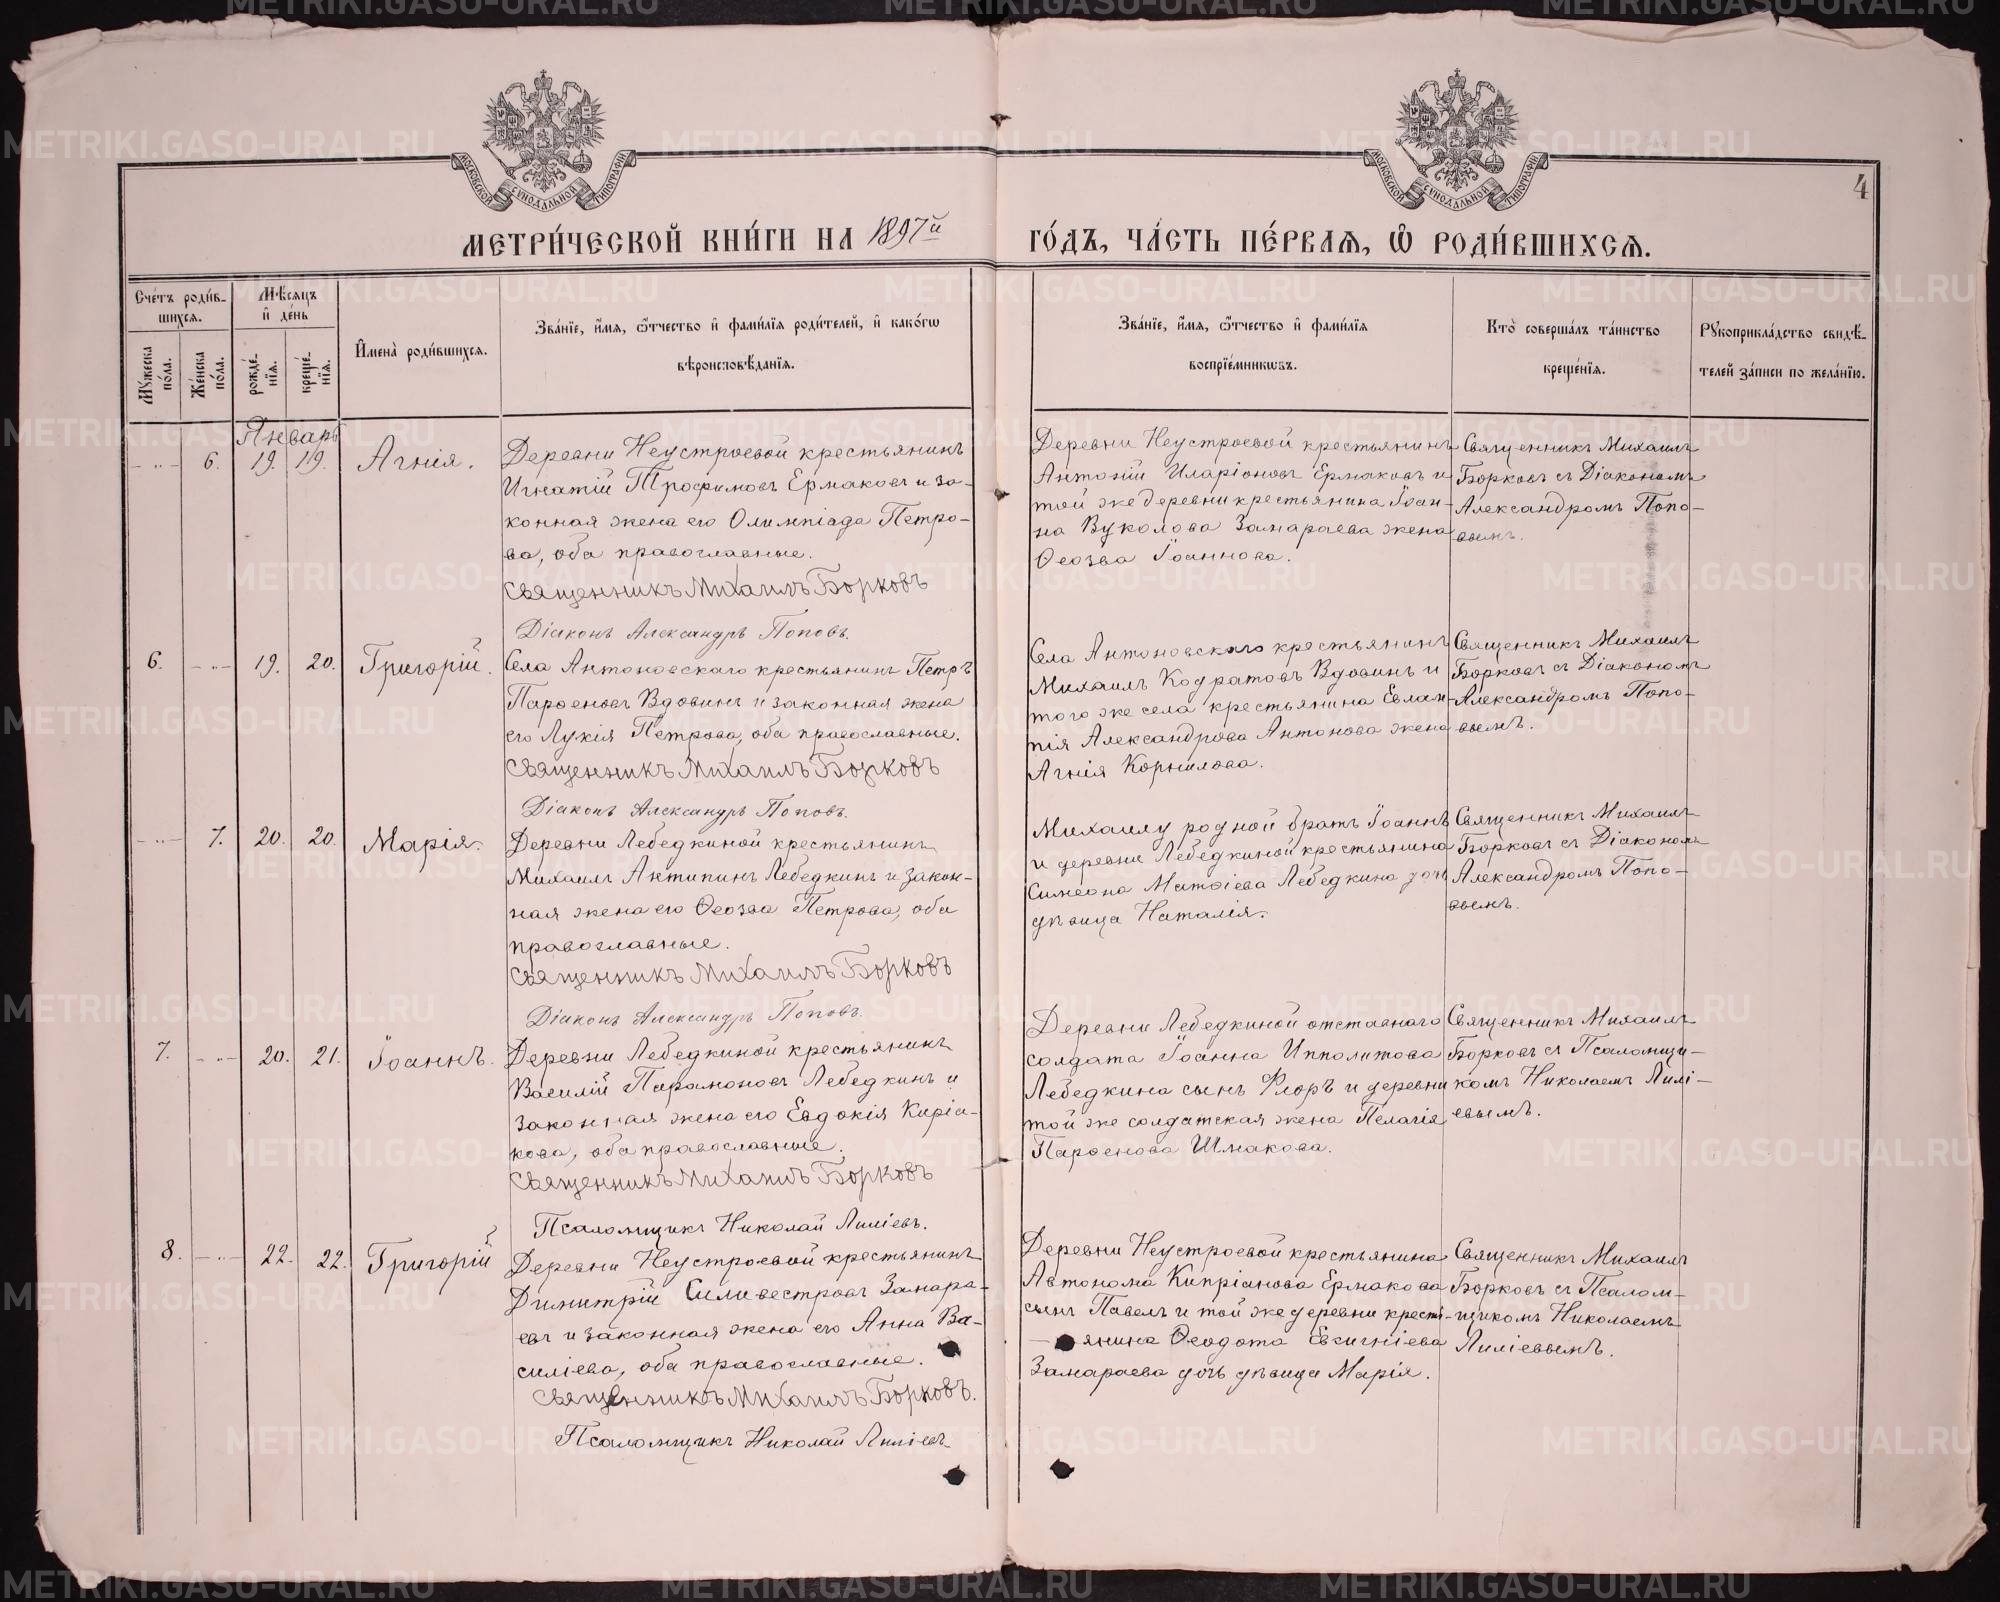 МЕТРИ́ЧЕСКОЙ КНИ́ГИ НА 1897й ГО́ДЪ, ЧА́СТЬ ПЕ́РВАЯ, Ѽ РОДИ́ВШИХСЯ.
4
МОСКОВСКОЙ СѴНОДАЛЬНОЙ ТИПОГРАФІИ
МОСКОВСКОЙ СѴНОДАЛЬНОЙ ТИПОГРАФІИ
Сче́тъ роди́в-
шихся.
Му́жеска по́ла.
Же́нска по́ла.
Мѣ́сяцъ и де́нь
рожде́нія.
креще́нія.
Имена̀ роди́вшихся.
Зва́нїе, и́мя, ѻ́тчество и҆ фами́лїя роди́телей, и҆ како́гѡ
вѣроисповѣ́данїя.
Зва́нїе, и́мя, ѻ́тчество и҆ фами́лїя
воспрїе́мникѡвъ.
Кто̀ соверша́лъ та́инство
креще́нїя.
Рꙋкоприкла́дство свидѣ́-
телей за́писи по жела́нїю.
Январь
- „ - 6. 19. 19. Агнія.
Деревни Неустроевой крестьянинъ
Игнатій Трофимовъ Ермаковъ и за-
конная жена его Олимпіада Петро-
ва, оба православные.
Священникъ Михаилъ Борковъ
Діаконъ Александръ Поповъ.
Деревни Неустроевой крестьянинъ
Антоній Иларіоновъ Ермаковъ и
той же деревни крестьянина Іоан-
на Вуколова Замараева жена
Ѳеозва Іоаннова.
Священникъ Михаилъ
Борковъ съ Діакономъ
Александромъ Попо-
вымъ.
6. - „ - 19. 20. Григорій.
Села Антоновскаго крестьянинъ Петръ
Парѳеновъ Вдовинъ и законная жена
его Лукія Петрова, оба православные.
Священникъ Михаилъ Борковъ
Діаконъ Александръ Поповъ.
Села Антоновскаго крестьянинъ
Михаилъ Кодратовъ Вдовинъ и
того же села крестьянина Евлам-
пія Александрова Антонова жена
Агнія Корнилова.
Священникъ Михаилъ
Борковъ съ Діакономъ
Александромъ Попо-
вымъ.
- „ - 7. 20. 20. Марія.
Деревни Лебедкиной крестьянинъ
Михаилъ Антипинъ Лебедкинъ и закон-
ная жена его Ѳеозва Петрова, оба
православные.
Священникъ Михаилъ Борковъ
Діаконъ Александръ Поповъ.
Михаилу родной братъ Іоаннъ
и деревни Лебедкиной крестьянина
Симеона Матѳіева Лебедкина дочь
дѣвица Наталія.
Священникъ Михаилъ
Борковъ съ Діакономъ
Александромъ Попо-
вымъ.
7. - „ - 20. 21. Іоаннъ.
Деревни Лебедкиной крестьянинъ
Василій Парамоновъ Лебедкинъ и
законная жена его Евдокія Киріа-
кова, оба православные.
Священникъ Михаилъ Борковъ
Псаломщикъ Николай Лиліевъ.
Деревни Лебедкиной отставнаго
солдата Іоанна Ипполитова
Лебедкина сынъ Флоръ и деревни
той же солдатская жена Пелагія
Парѳенова Шмакова.
Священникъ Михаилъ
Борковъ съ Псаломщи-
комъ Николаемъ Лилі-
евымъ.
8. - „ - 22. 22. Григорій
Деревни Неустроевой крестьянинъ
Димитрій Силивестровъ Замара-
евъ и законная жена его Анна Ва-
силіева, оба православные.
Священникъ Михаилъ Борковъ.
Псаломщикъ Николай Лиліевъ
Деревни Неустроевой крестьянина
Автонома Кипріанова Ермакова
сынъ Павелъ и той же деревни кресть-
янина Ѳеодота Евсигніева
Замараева дочь дѣвица Марія.
Священникъ Михаилъ
Борковъ съ Псалом-
щикомъ Николаемъ
Лиліевымъ.
METRIKI.GASO-URAL.RU